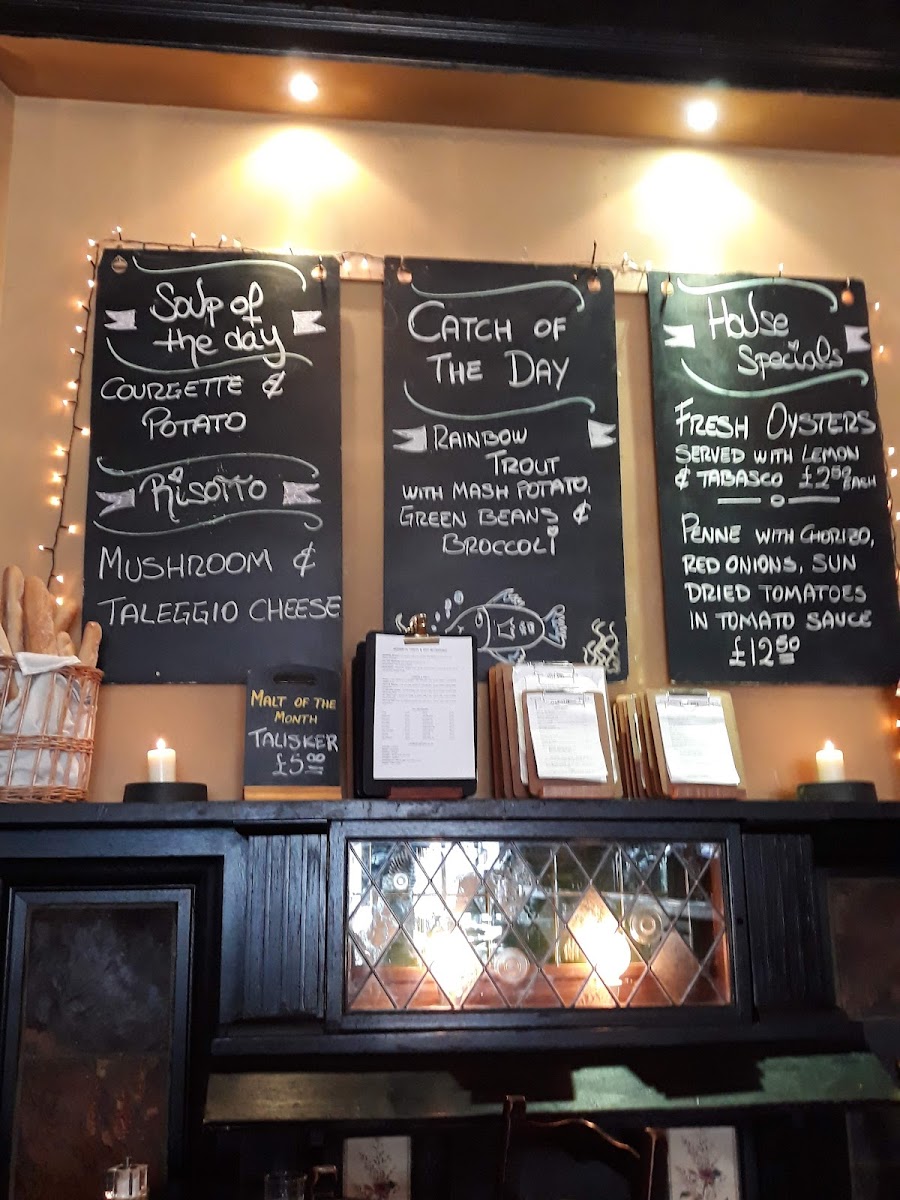 Soup of
the day
COURGETTE &
POTATO
Risotto
MUSHROOM &
TALEGGIO CHEESE
CATCH OF
THE DAY
RAINBOW
TROUT
WITH MASH POTATO,
GREEN BEANS &
BROCCOLI
House
Specials
FRESH OYSTERS
SERVED WITH LEMON
& TABASCO £2.50 EACH
PENNE WITH CHORIZO,
RED ONIONS, SUN
DRIED TOMATOES
IN TOMATO SAUCE
£12.50
MALT OF THE
MONTH
TALISKER
£5.00